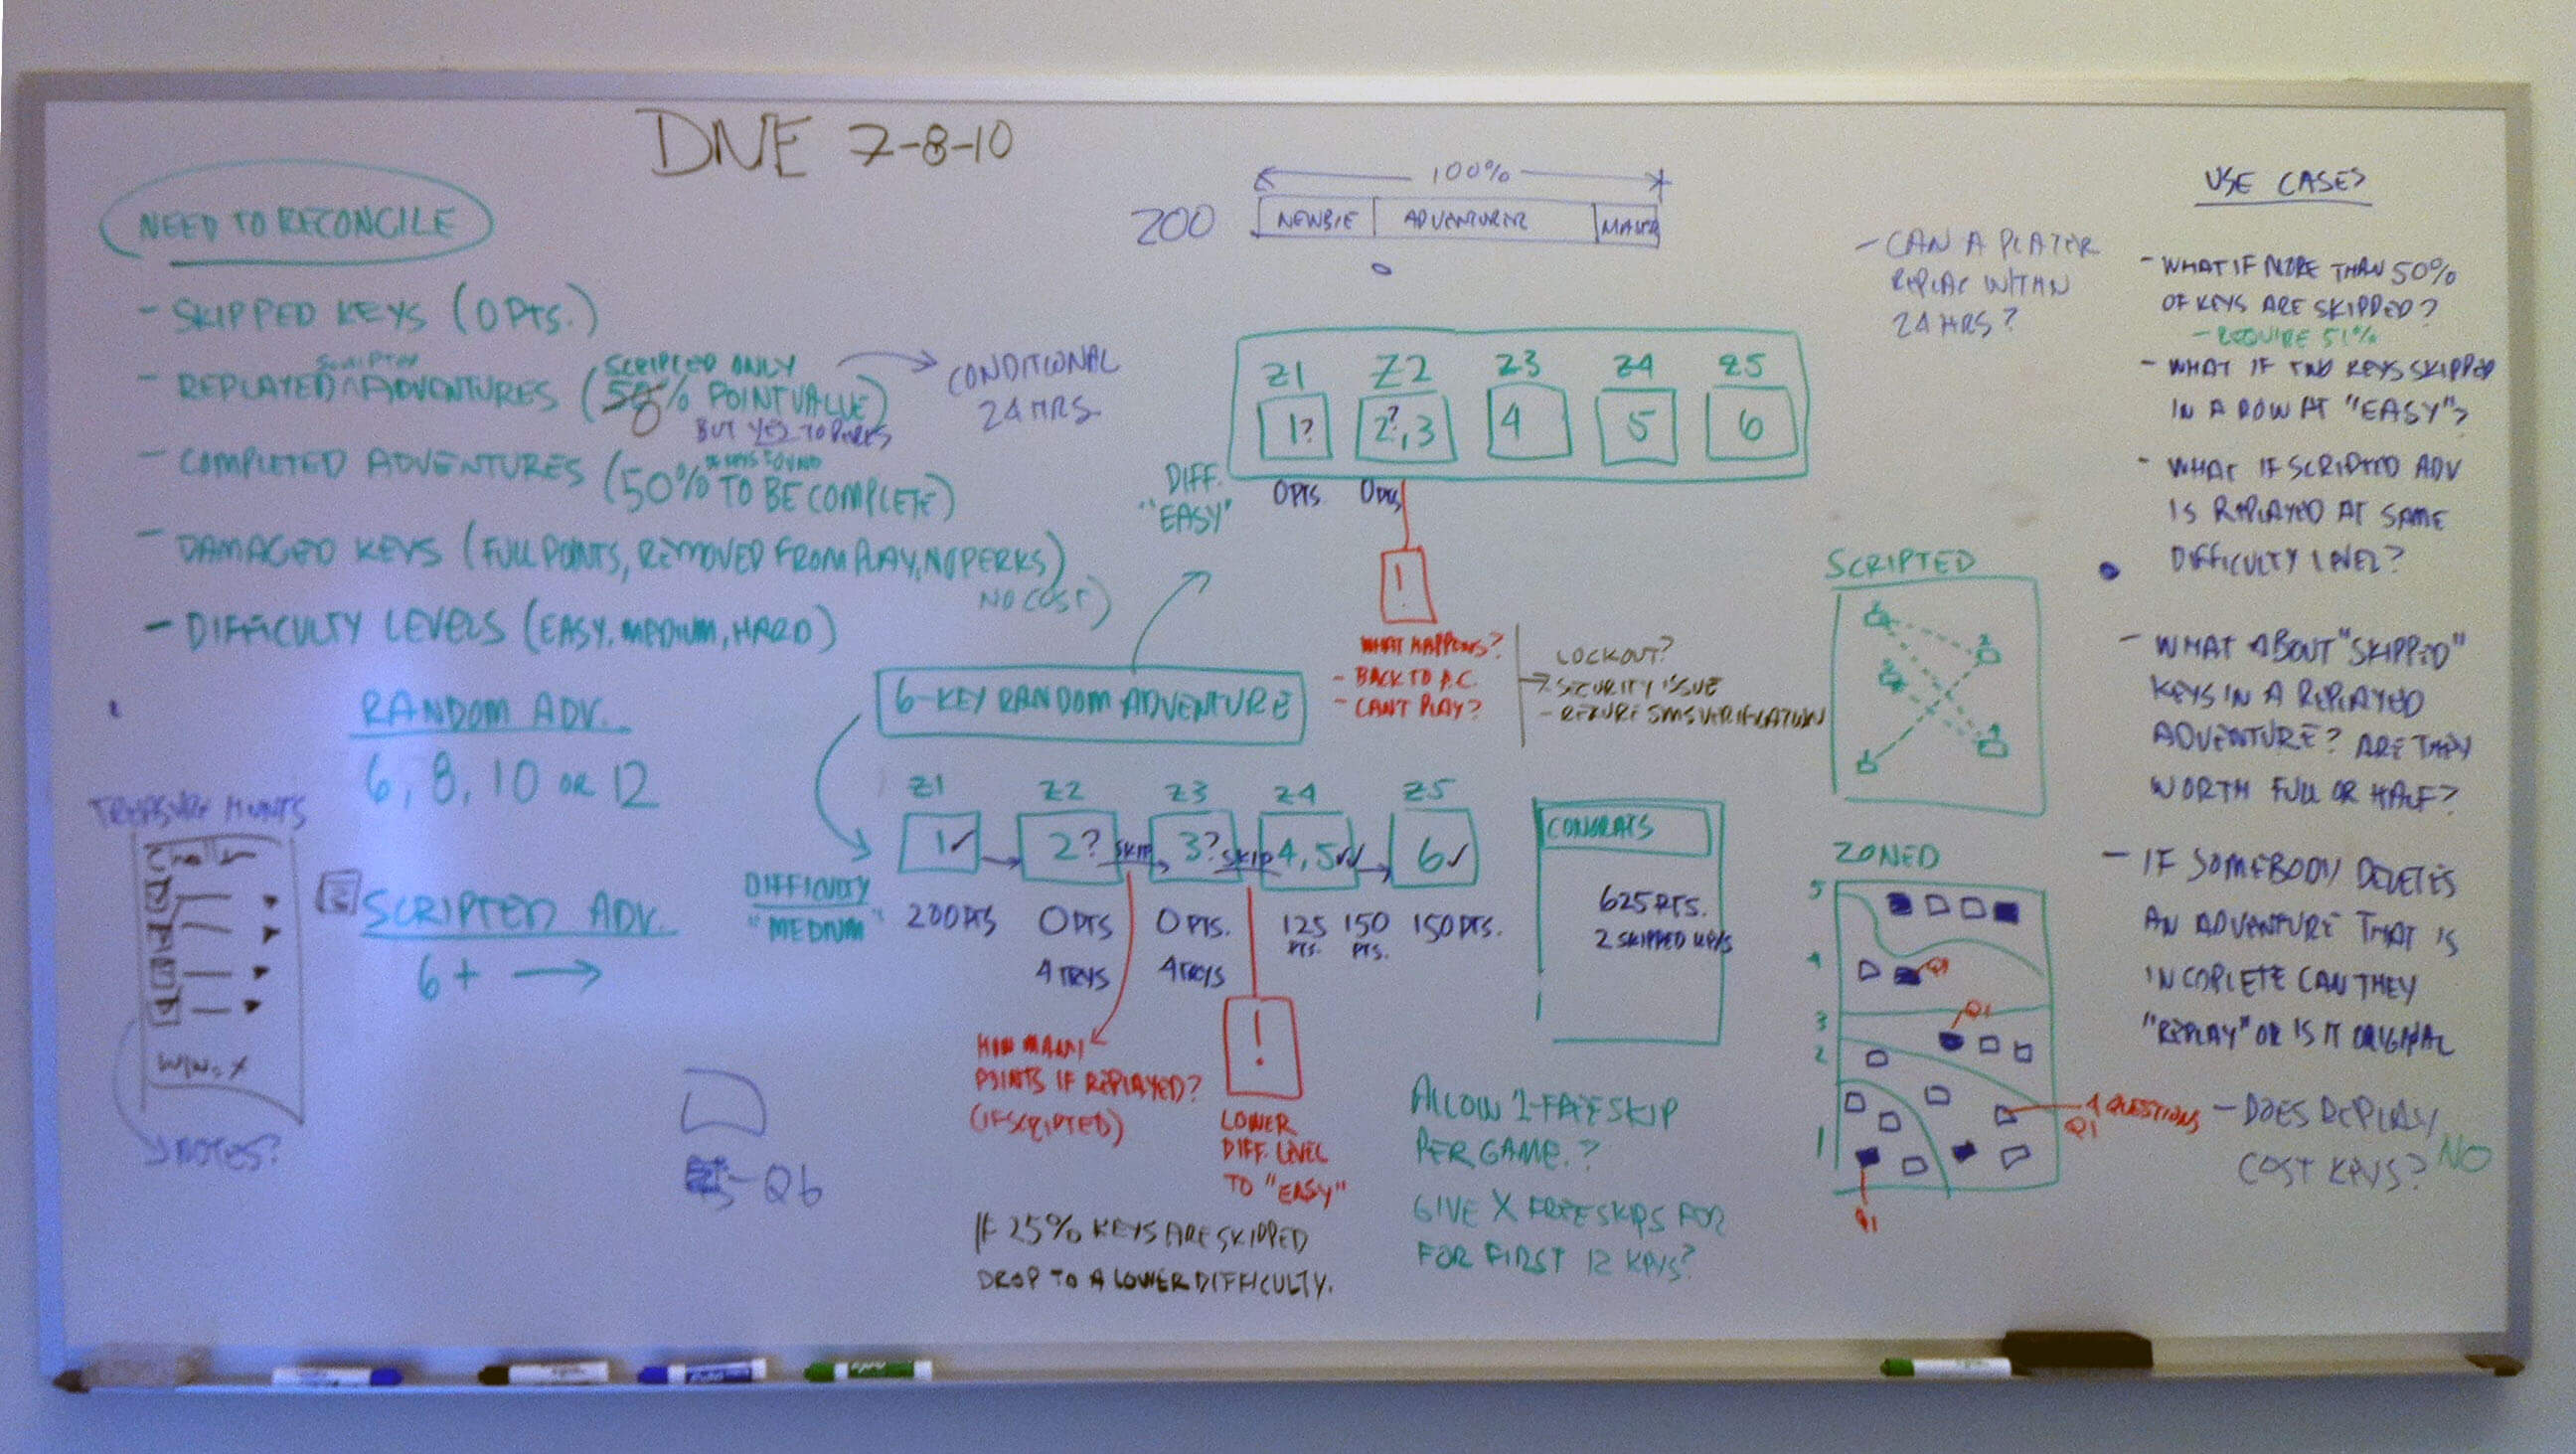 DNE 7-8-10
NEED TO RECONCILE
- SKIPPED KEYS (0 PTS.)
SCRIPTED
SCRIPTED ONLY
- REPLAYED ^ ADVENTURES (% POINT VALUE)
BUT YES TO PERKS
CONDITIONAL
24 HRS
OF KEYS FOUND
- COMPLETED ADVENTURES (50% TO BE COMPLETE)
- DAMAGED KEYS (FULL POINTS, REMOVED FROM PLAY, NO PERKS)
NO COST)
- DIFFICULTY LEVELS (EASY, MEDIUM, HARD)
RANDOM ADV.
6, 8, 10 OR 12
SCRIPTED ADV.
6+
TREASURE HUNTS
WIN: X
NOTES?
- Q6
100%
200
NEWBIE
ADVENTURER
Z1 Z2 Z3 Z4 Z5
1? 2?,3 4 5 6
DIFF.
"EASY"
0 PTS. 0 PTS
!
WHAT HAPPENS?
- BACK TO A.C.
- CANT PLAY?
LOCKOUT?
SECURITY ISSUE
- REQURE SMS VERIFICATION
6-KEY RANDOM ADVENTURE
Z1 Z2 Z3 Z4 Z5
1✓ 2? SKIP 3? SKIP 4,5✓✓ 6✓
DIFFICULTY
"MEDIUM"
200 PTS 0 PTS 0 PTS. 125 PTS. 150 PTS. 150 PTS.
4 TRYS 4 TRYS
HOW MANY
POINTS IF REPLAYED?
(IF SCRIPTED)
!
LOWER
DIFF. LEVEL
TO "EASY"
IF 25% KEYS ARE SKIPPED
DROP TO A LOWER DIFFICULTY.
CONGRATS
625 PTS.
2 SKIPPED KEYS
ALLOW 1-FREE SKIP
PER GAME.?
GIVE X FREE SKIPS FOR
FOR FIRST 12 KEYS?
- CAN A PLAYER
REPLAY WITHIN
24 HRS?
SCRIPTED
ZONED
5
4
Q1
3
Q1
2
1
4 QUESTIONS
Q1
Q1
USE CASES
- WHAT IF MORE THAN 50%
OF KEYS ARE SKIPPED?
- REQUIRE 51%
- WHAT IF TWO KEYS SKIPPED
IN A ROW AT "EASY"?
- WHAT IF SCRIPTED ADV
IS REPLAYED AT SAME
DIFFICULTY LEVEL?
- WHAT ABOUT "SKIPPED"
KEYS IN A REPLAYED
ADVENTURE? ARE THEY
WORTH FULL OR HALF?
- IF SOMEBODY DELETES
AN ADVENTURE THAT IS
INCOPLETE CAN THEY
"REPLAY" OR IS IT ORIGINAL
- DOES REPLAY
COST KEYS? NO